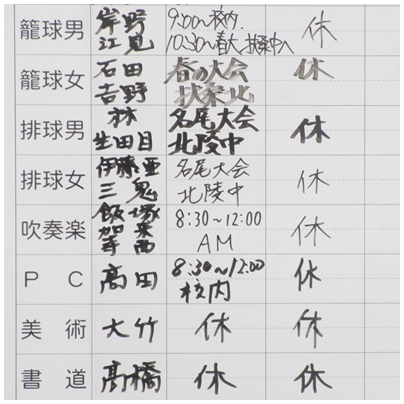 籠球男 岸野 9:00〜校内 休
江見 10:30〜春大 扶桑中へ
籠球女 石田 春の大会 休
吉野 扶桑北
排球男 林 名尾大会 休
生田目 北陵中
排球女 伊藤亜 名尾大会 休
三鬼 北陵中
吹奏楽 飯塚 8:30〜12:00 休
加東 AM
寺西
PC 高田 8:30〜12:00 休
校内
美術 大竹 休 休
書道 髙橋 休 休